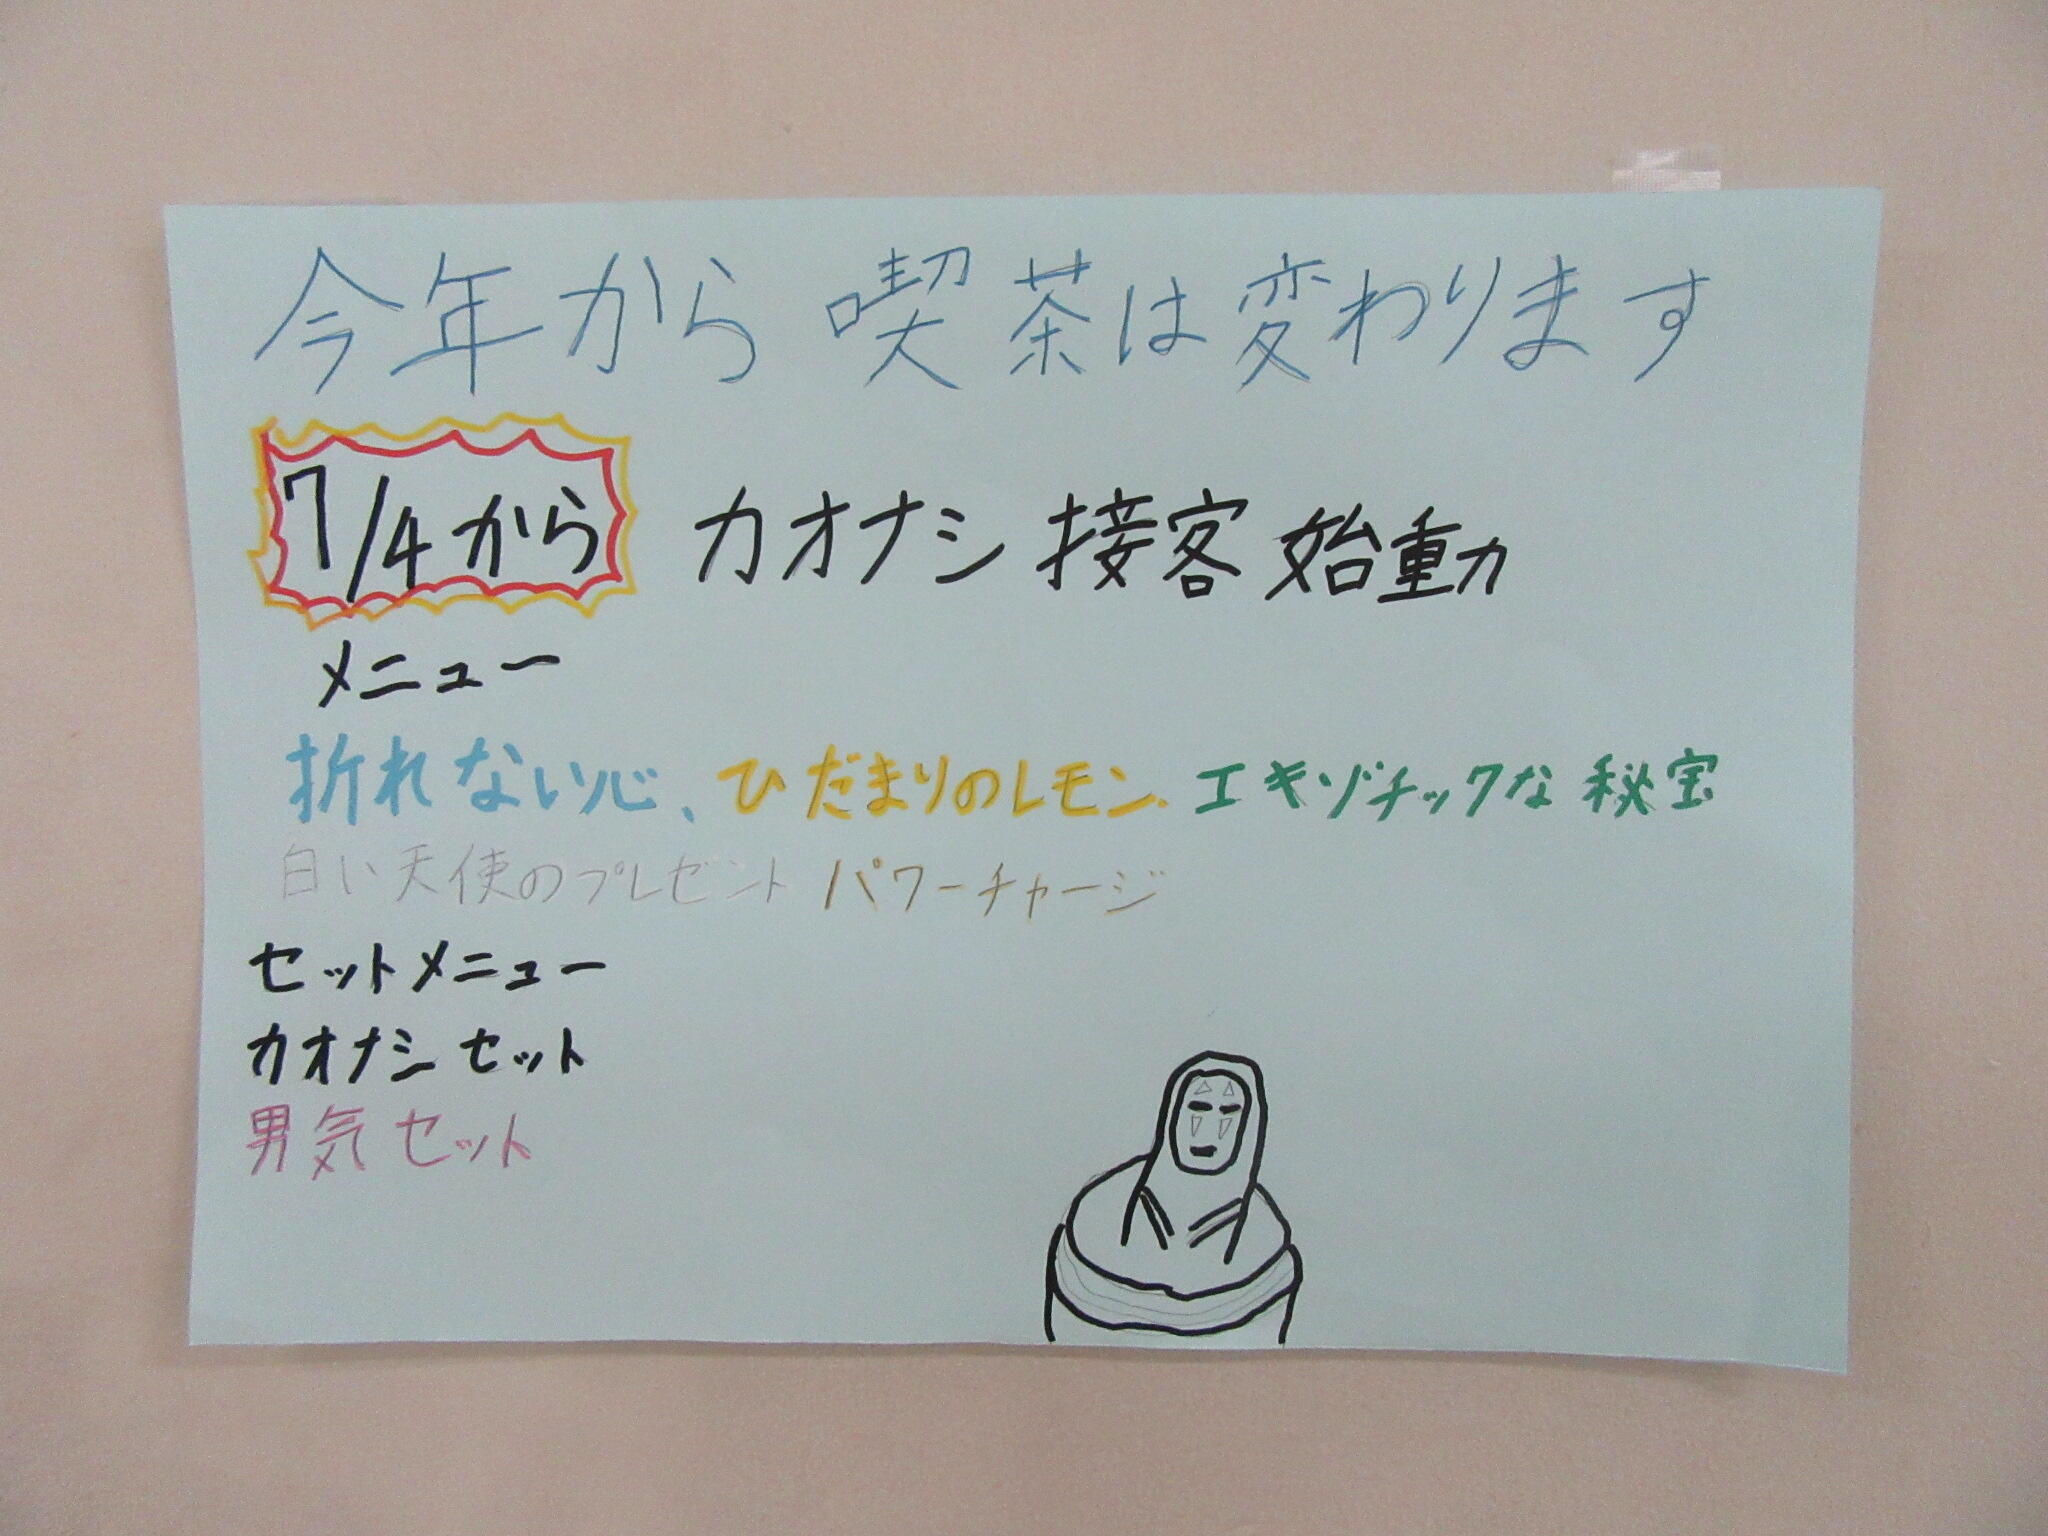 今年から喫茶は変わります
7/4から カオナシ 接客 始動
メニュー
折れない心、ひだまりのレモン、エキゾチックな秘宝
白い天使のプレゼント パワーチャージ
セットメニュー
カオナシセット
男気セット